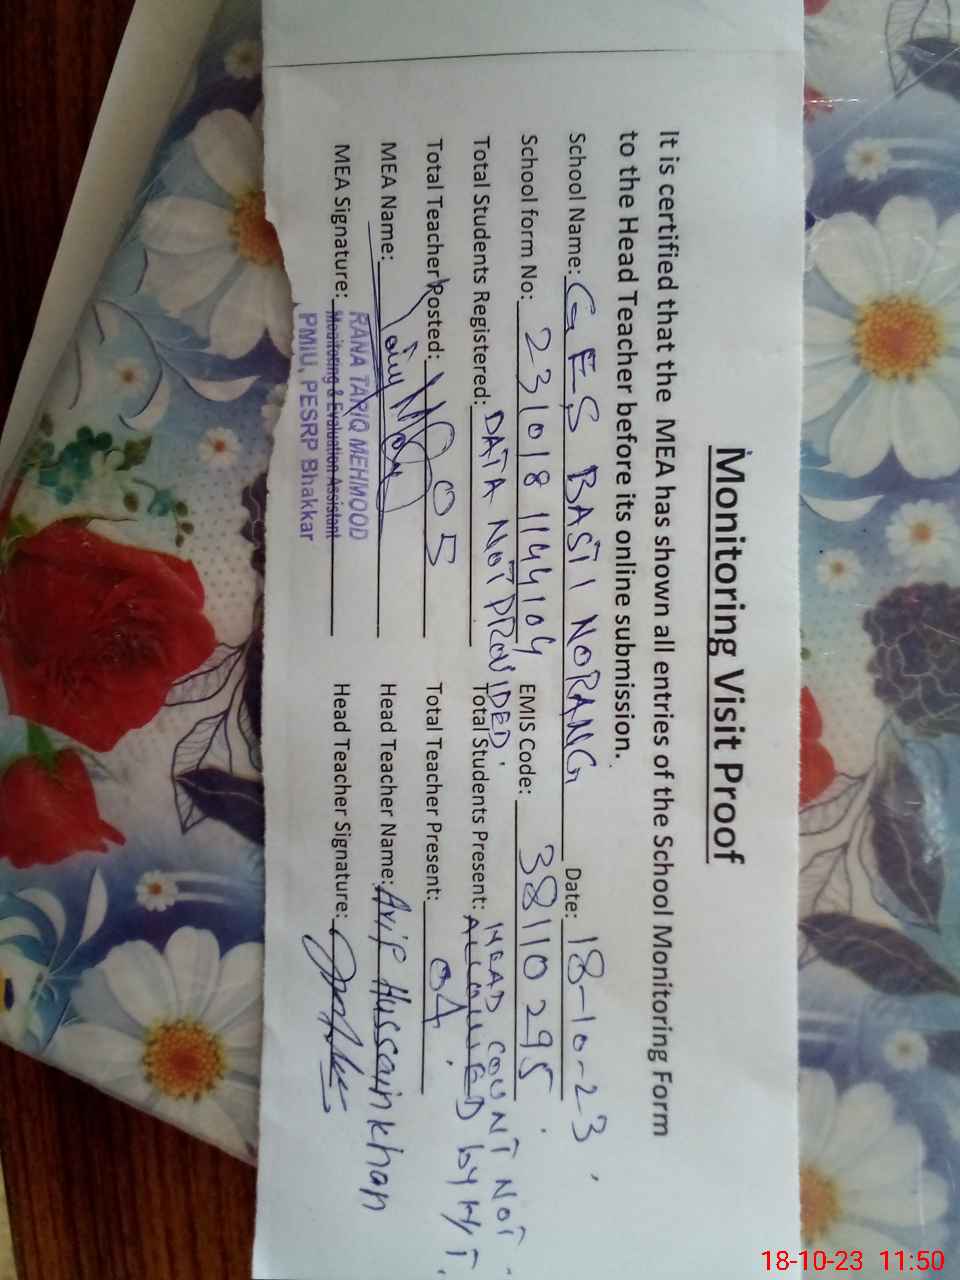 Monitoring Visit Proof
It is certified that the MEA has shown all entries of the School Monitoring Form
to the Head Teacher before its online submission.
School Name: GES BASTI NORANG Date: 18-10-23
School form No: 2310181144104 EMIS Code: 38110295
Total Students Registered: DATA NOT PROVIDED. Total Students Present: HEAD COUNT NOT ALLOWED by H/T.
Total Teacher Posted: 05 Total Teacher Present: 04
MEA Name: Head Teacher Name: Arif Hussain khan
MEA Signature: Head Teacher Signature:
RANA TARIQ MEHMOOD
Monitoring & Evaluation Assistant
PMIU, PESRP Bhakkar
18-10-23 11:50